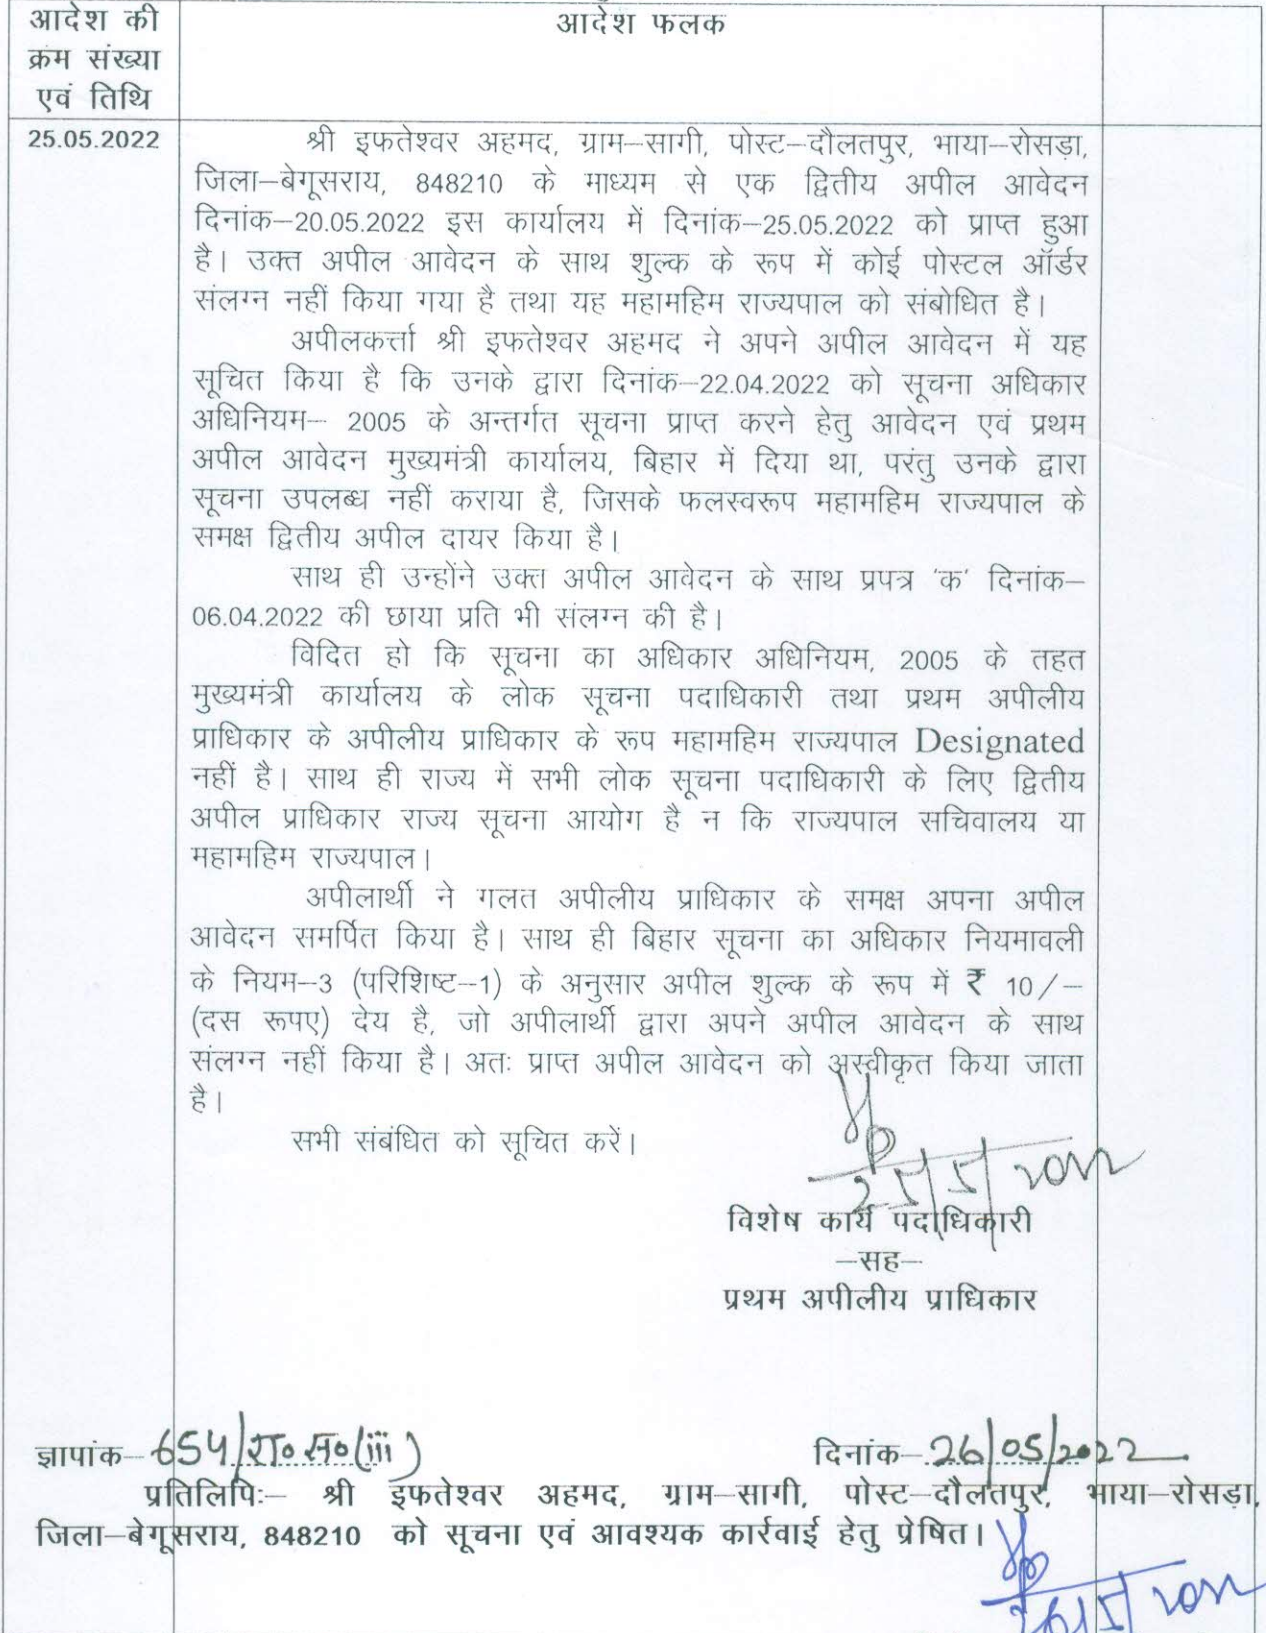 आदेश की
क्रम संख्या
एवं तिथि
आदेश फलक
25.05.2022
श्री इफतेश्वर अहमद, ग्राम–सागी, पोस्ट–दौलतपुर, भाया–रोसड़ा,
जिला–बेगूसराय, 848210 के माध्यम से एक द्वितीय अपील आवेदन
दिनांक–20.05.2022 इस कार्यालय में दिनांक–25.05.2022 को प्राप्त हुआ
है। उक्त अपील आवेदन के साथ शुल्क के रूप में कोई पोस्टल ऑर्डर
संलग्न नहीं किया गया है तथा यह महामहिम राज्यपाल को संबोधित है।
अपीलकर्त्ता श्री इफतेश्वर अहमद ने अपने अपील आवेदन में यह
सूचित किया है कि उनके द्वारा दिनांक–22.04.2022 को सूचना अधिकार
अधिनियम– 2005 के अन्तर्गत सूचना प्राप्त करने हेतु आवेदन एवं प्रथम
अपील आवेदन मुख्यमंत्री कार्यालय, बिहार में दिया था, परंतु उनके द्वारा
सूचना उपलब्ध नहीं कराया है, जिसके फलस्वरूप महामहिम राज्यपाल के
समक्ष द्वितीय अपील दायर किया है।
साथ ही उन्होंने उक्त अपील आवेदन के साथ प्रपत्र 'क' दिनांक–
06.04.2022 की छाया प्रति भी संलग्न की है।
विदित हो कि सूचना का अधिकार अधिनियम, 2005 के तहत
मुख्यमंत्री कार्यालय के लोक सूचना पदाधिकारी तथा प्रथम अपीलीय
प्राधिकार के अपीलीय प्राधिकार के रूप महामहिम राज्यपाल Designated
नहीं है। साथ ही राज्य में सभी लोक सूचना पदाधिकारी के लिए द्वितीय
अपील प्राधिकार राज्य सूचना आयोग है न कि राज्यपाल सचिवालय या
महामहिम राज्यपाल।
अपीलार्थी ने गलत अपीलीय प्राधिकार के समक्ष अपना अपील
आवेदन समर्पित किया है। साथ ही बिहार सूचना का अधिकार नियमावली
के नियम–3 (परिशिष्ट–1) के अनुसार अपील शुल्क के रूप में ₹ 10/–
(दस रूपए) देय है, जो अपीलार्थी द्वारा अपने अपील आवेदन के साथ
संलग्न नहीं किया है। अतः प्राप्त अपील आवेदन को अस्वीकृत किया जाता
है।
सभी संबंधित को सूचित करें।
25/5/2022
विशेष कार्य पदाधिकारी
–सह–
प्रथम अपीलीय प्राधिकार
ज्ञापांक– 654/रा० स०(iii) दिनांक– 26/05/2022
प्रतिलिपिः– श्री इफतेश्वर अहमद, ग्राम–सागी, पोस्ट–दौलतपुर, भाया–रोसड़ा,
जिला–बेगूसराय, 848210 को सूचना एवं आवश्यक कार्रवाई हेतु प्रेषित।